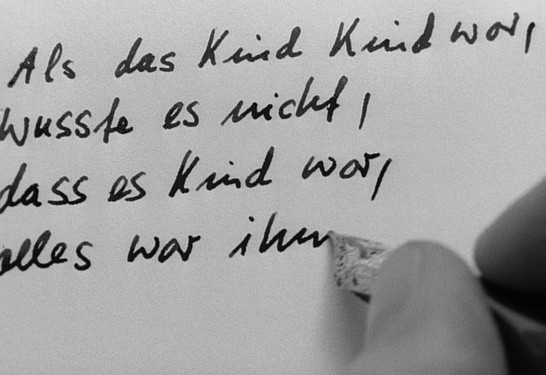 Als das Kind Kind war,
wusste es nicht,
dass es Kind war,
alles war ihm